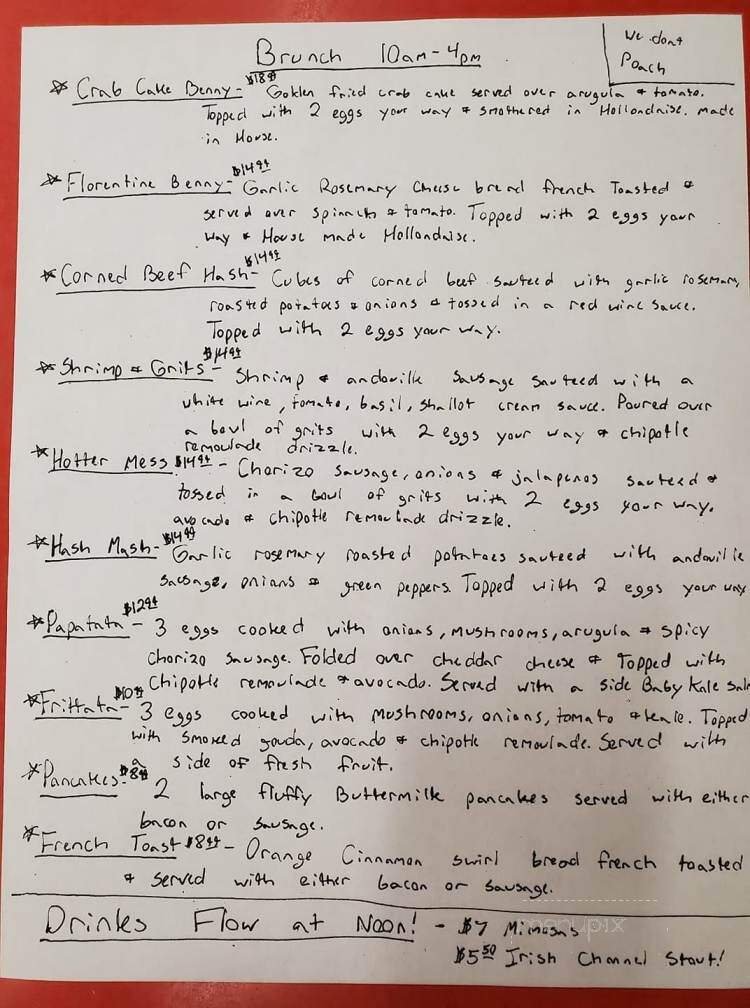 Brunch 10am-4pm
We dont
Poach
☆ Crab Cake Benny - $18 Golden fried crab cake served over arugula & tomato.
Topped with 2 eggs your way & smothered in Hollondaise. made
in House.
☆ Florentine Benny - $14 Garlic Rosemary Cheese bread french Toasted &
served over Spinach & tomato. Topped with 2 eggs your
way & House made Hollondaise.
☆ Corned Beef Hash - $14 Cubes of corned beef sauteed with garlic rosemary
roasted potatoes & onions & tossed in a red wine sauce.
Topped with 2 eggs your way.
☆ Shrimp & Grits - $14 Shrimp & andoville Sausage Sauteed with a
white wine, tomato, basil, shallot cream sauce. Poured over
a bowl of grits with 2 eggs your way & chipotle
remoulade drizzle.
☆ Hotter Mess $14 - Chorizo sausage, onions & jalapenos sauteed &
tossed in a bowl of grits with 2 eggs your way.
avocado & chipotle remoulade drizzle.
☆ Hash Mash - $14 Garlic rosemary roasted potatoes sauteed with andoville
Sausage, onions & green peppers. Topped with 2 eggs your way
☆ Papatata - $12 3 eggs cooked with onions, mushrooms, arugula & spicy
Chorizo Sausage. Folded over cheddar cheese & Topped with
Chipotle remoulade & avocado. Served with a side Baby Kale Sala
☆ Frittata - $10 3 eggs cooked with mushrooms, onions, tomato & kale. Topped
with smoked gouda, avocado & chipotle remoulade. Served with
a side of fresh fruit.
☆ Pancakes - $8 2 large fluffy Buttermilk pancakes served with either
bacon or sausage.
☆ French Toast $8 - Orange Cinnamon swirl bread french toasted
& served with either bacon or sausage.
Drinks Flow at Noon! - $7 Mimosas
menupix
$5.50 Irish Channel Stout!